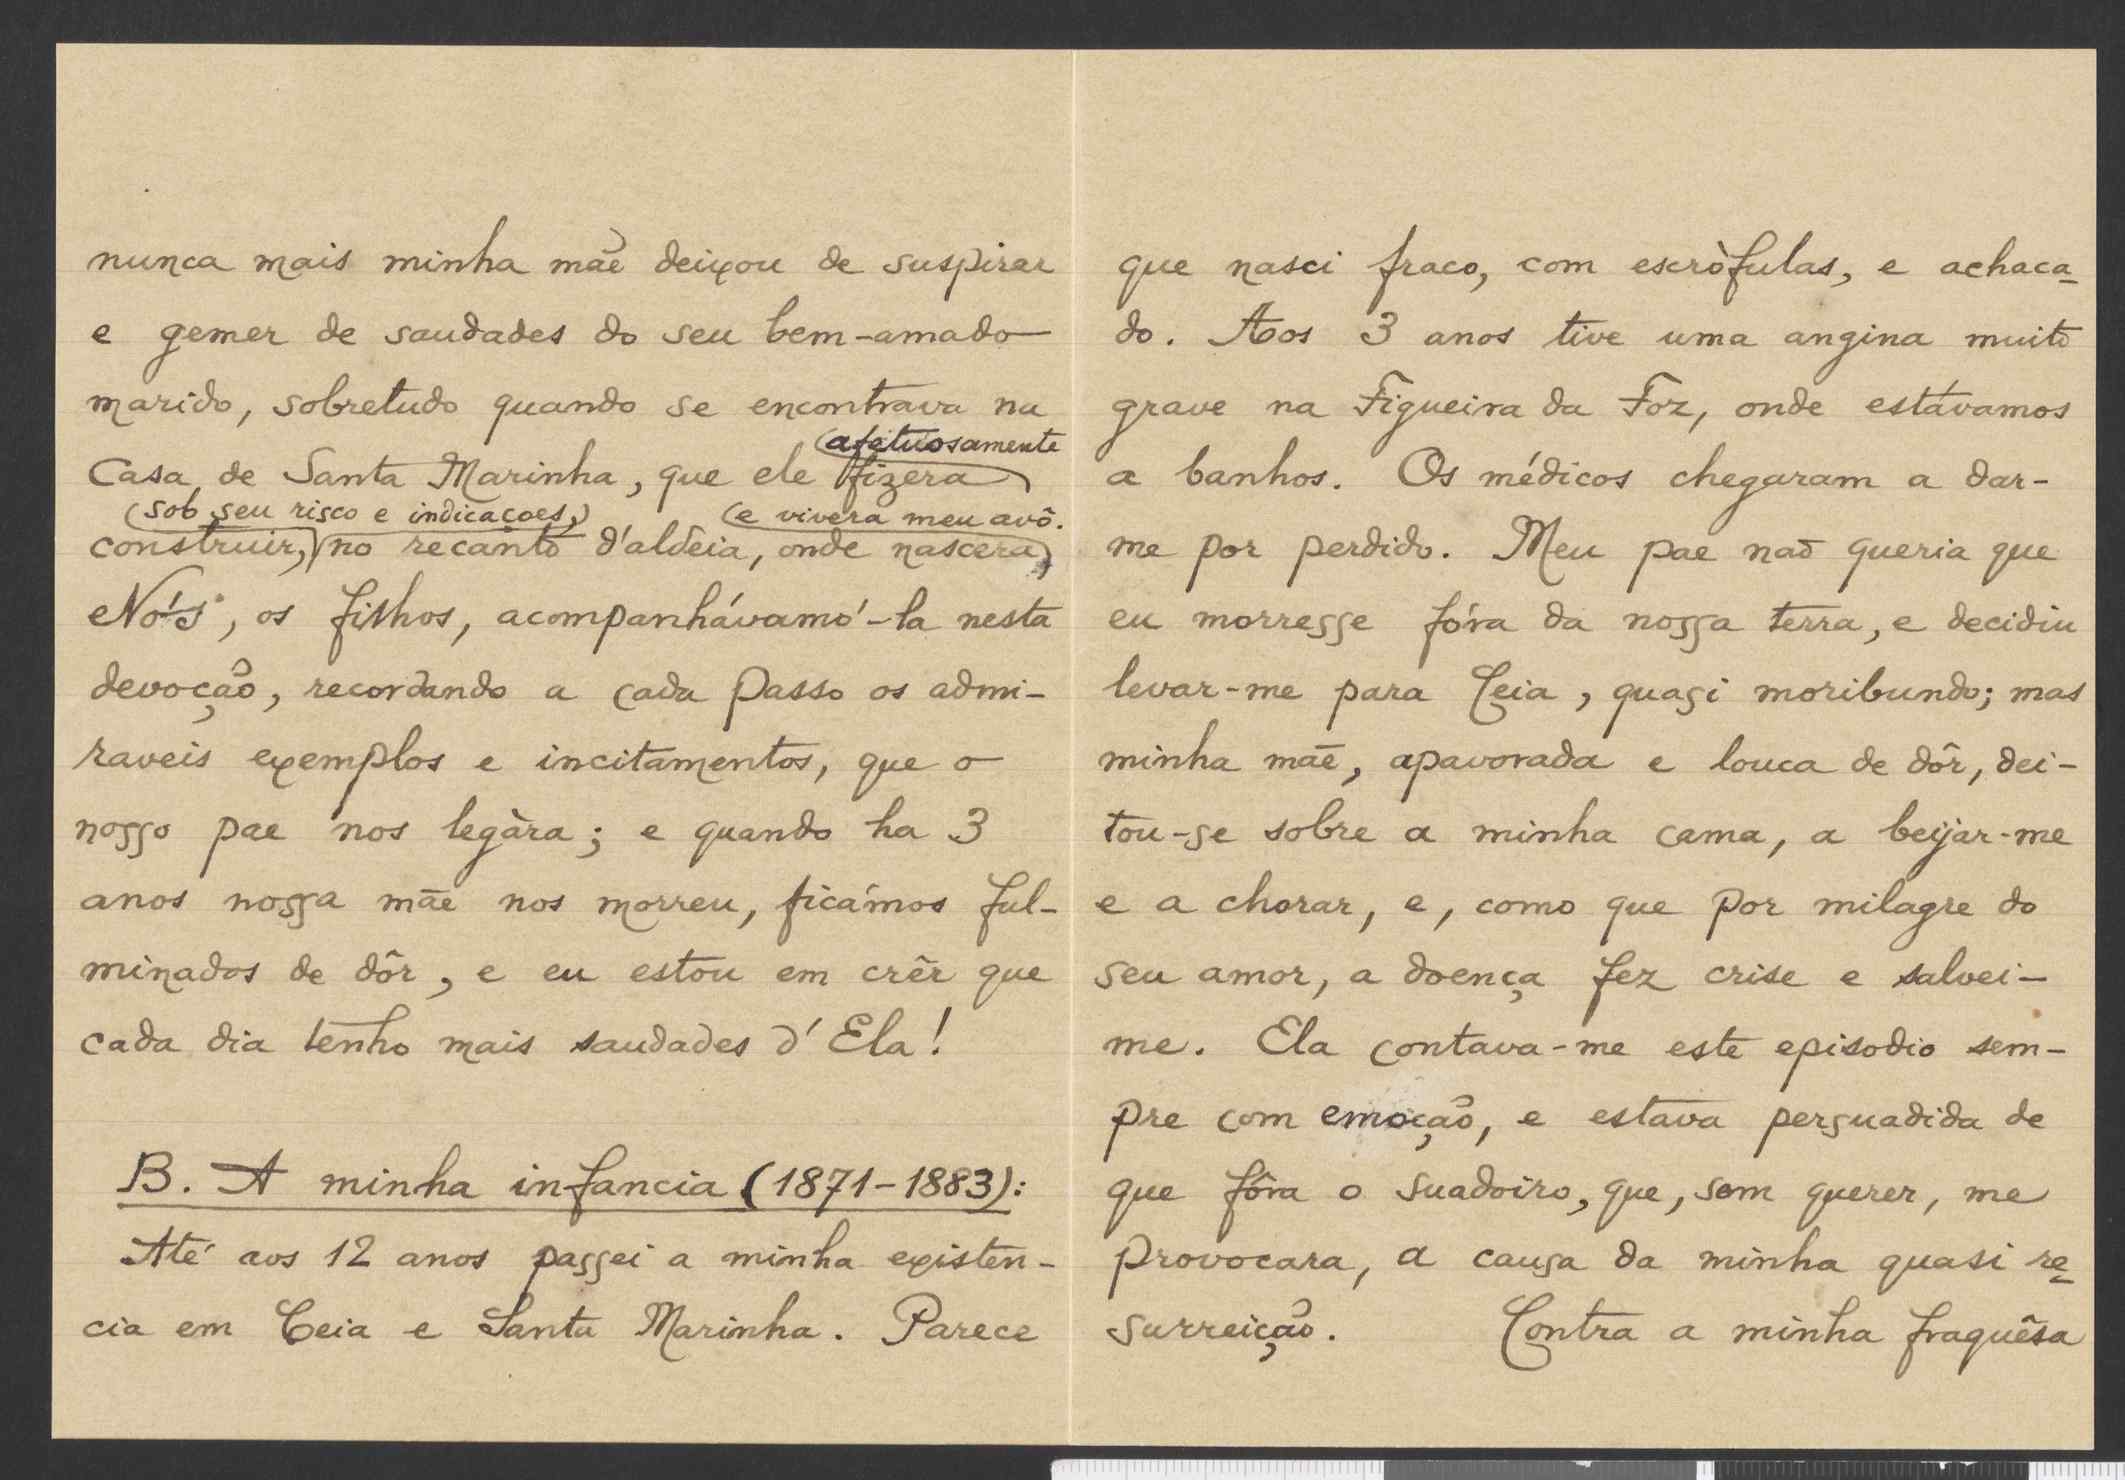 nunca mais minha mãe deixou de suspirar
e gemer de saudades do seu bem-amado
marido, sobretudo quando se encontrava na
(afetuosamente
Casa de Santa Marinha, que ele fizera
(sob seu risco e indicaçoes,) (e vivera meu avô.
construir, no recanto d'aldeia, onde nascera
e Nós, os filhos, acompanhávamó-la nesta
devoção, recordando a cada passo os admi-
raveis exemplos e incitamentos, que o
nosso pae nos legàra; e quando ha 3
anos nossa mãe nos morreu, ficámos ful-
minados de dôr, e eu estou em crêr que
cada dia tenho mais saudades d'Ela!
B. A minha infancia (1871-1883):
Até aos 12 anos passei a minha existen-
cia em Ceia e Santa Marinha. Parece
que nasci fraco, com escròfulas, e achaca-
do. Aos 3 anos tive uma angina muito
grave na Figueira da Foz, onde estávamos
a banhos. Os médicos chegaram a dar-
me por perdido. Meu pae não queria que
eu morresse fóra da nossa terra, e decidiu
levar-me para Ceia, quasi moribundo; mas
minha mãe, apavorada e louca de dôr, dei-
tou-se sobre a minha cama, a beijar-me
e a chorar, e, como que por milagre do
seu amor, a doença fez crise e salvei-
me. Ela contava-me este episodio sem-
pre com emoção, e estava persuadida de
que fôra o suadoiro, que, sem querer, me
provocara, a causa da minha quasi re-
surreição. Contra a minha fraquêsa